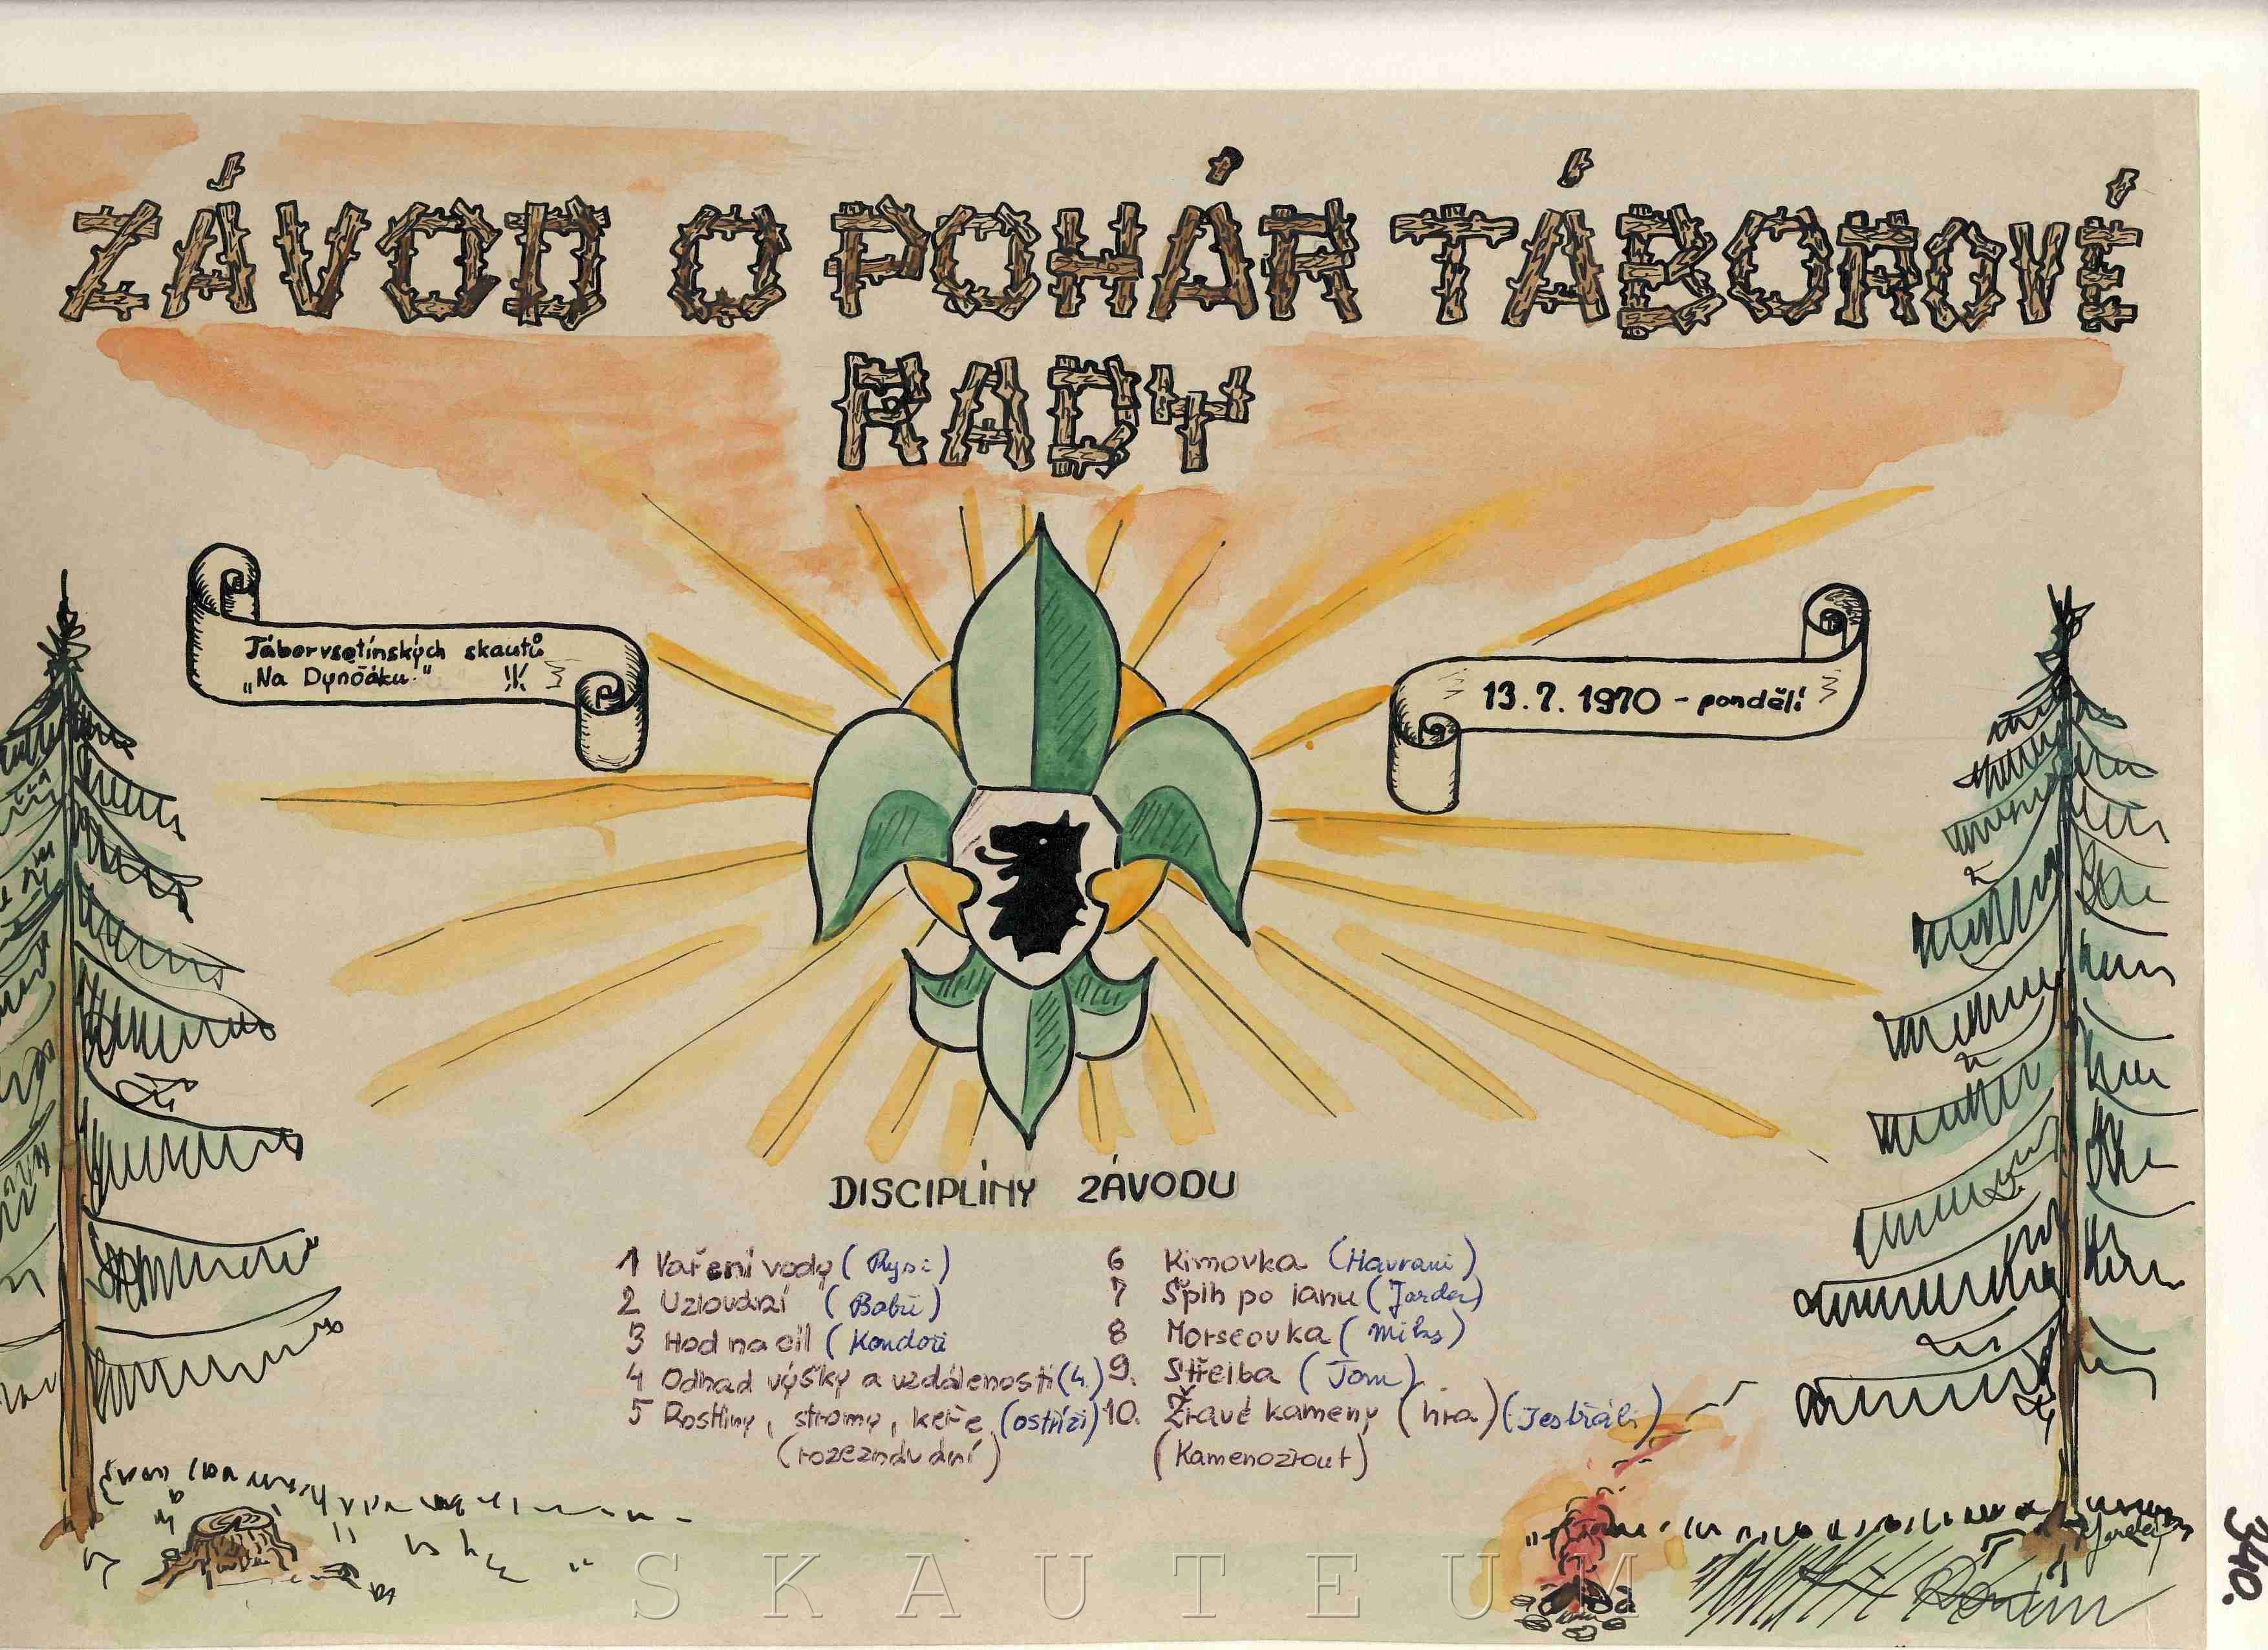 ZÁVOD O POHÁR TÁBOROVÉ
RADY
Tábor vsetínských skautů
„Na Dynčáku." !!!
13.7.1970 - pondělí
DISCIPLÍNY ZÁVODU
1 Vaření vody (Rysi)
2 Uzlování (Bobři)
3 Hod na cíl (Kondoři
4 Odhad výšky a vzdálenosti (4.)
5 Rostliny, stromy, keře (ostříži)
(rozeznávání)
6 Kimovka (Havrani)
7 Šplh po lanu (Jarda)
8 Morseovka (Miks)
9. Střelba (Tom)
10. Žravé kameny (hra) (Jestřábi)
(Kamenožrout)
SKAUTEUM
340.